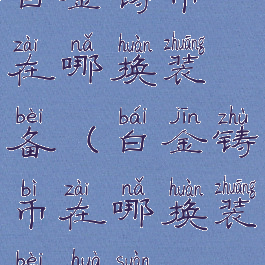 白金铸币
zài nǎ huàn zhuāng
在哪换装
bèi bái jīn zhù
备(白金铸
bì zài nǎ huàn zhuāng
币在哪换装
bèi huà suàn